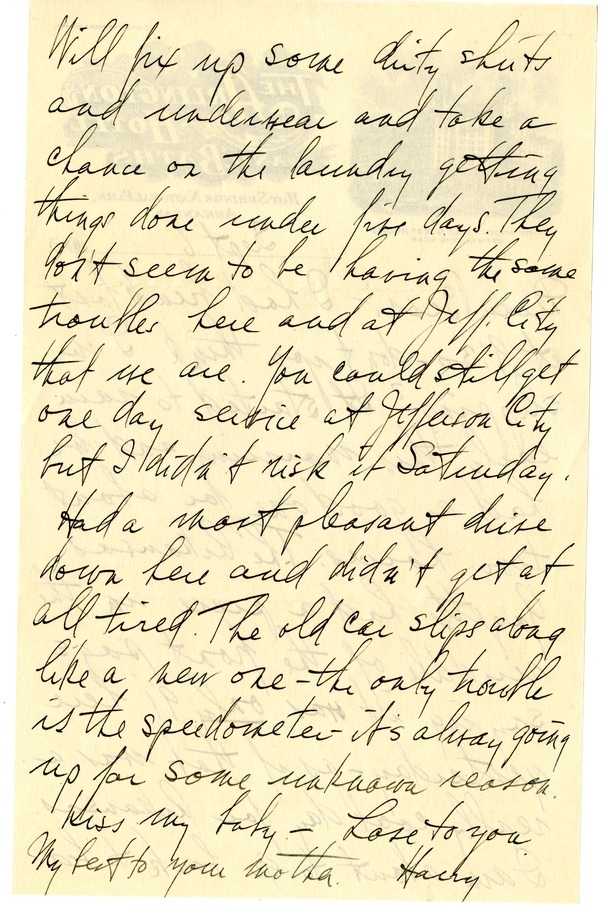 Will fix up some dirty shirts
and underwear and take a
chance on the laundry getting
things done under five days. They
don't seem to be having the same
troubles here and at Jeff. City
that we are. You could still get
one day service at Jefferson City
but I didn't risk it Saturday.
Had a most pleasant drive
down here and didn't get at
all tired. The old car slips along
like a new one - the only trouble
is the speedometer - it's alway going
up for some unknown reason.
Kiss my baby - Love to you
My best to your mother. Harry